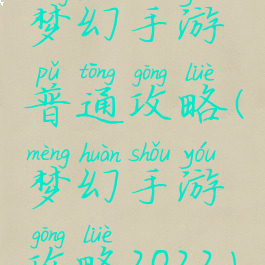 梦幻手游
pǔ tōng gōng lüè
普通攻略(
mèng huàn shǒu yóu
梦幻手游
gōng lüè
攻略2022)